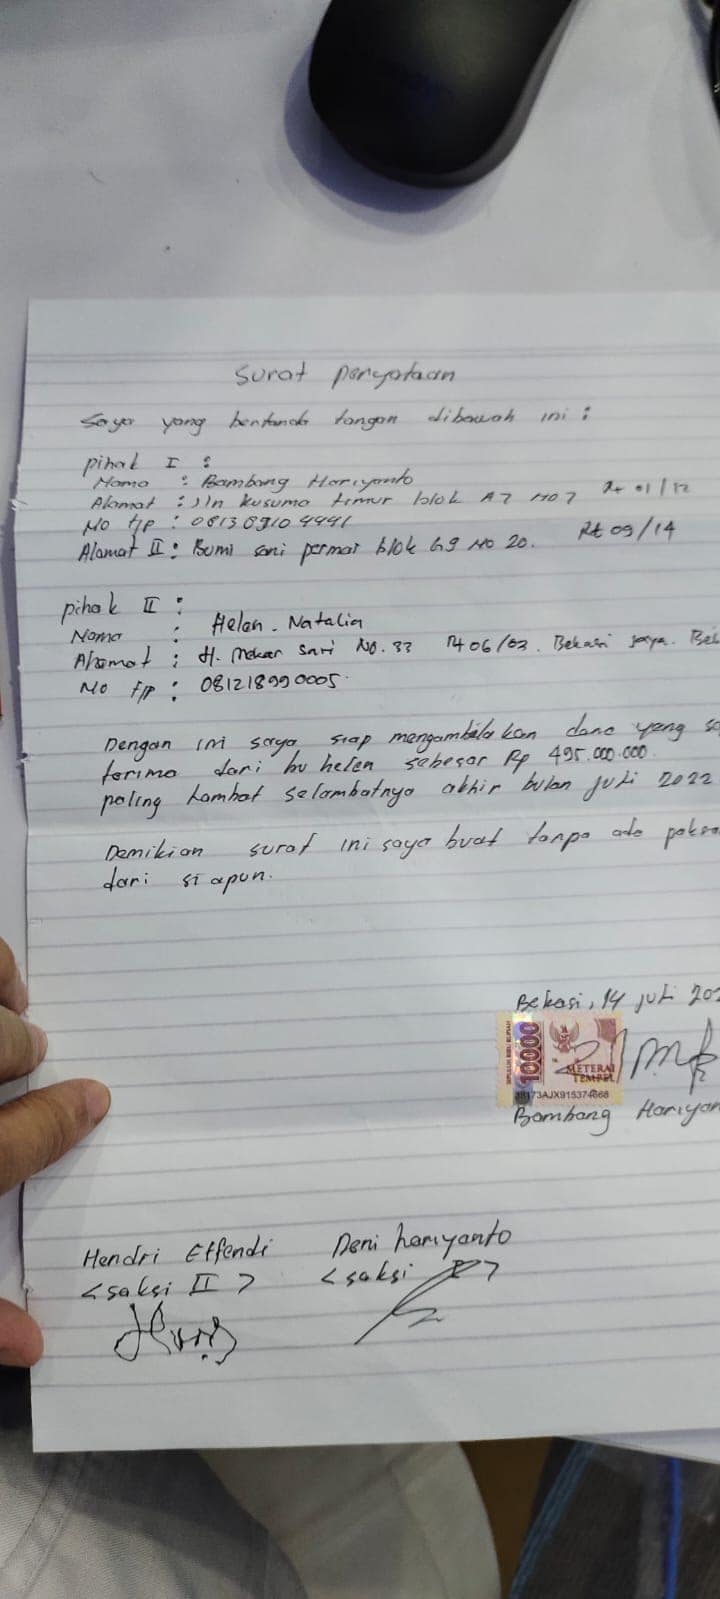 Surat penyataan
Saya yang bertanda tangan dibawah ini :
pihak I :
Nama : Bambang Hariyanto
Alamat : Jln kusuma timur blok A7 No 7 Rt 01/12
No Hp : 0813 8910 4441
Alamat II : Bumi sani permai blok G9 No 20. Rt 09/14
pihak II :
Nama : Helen. Natalia
Alamat : Jl. Mekar Sari No. 33 Rt 06/03. Bekasi Jaya. Bek
No Hp : 081218990005.
Dengan ini saya siap mengambilakan dana yang sa
terima dari bu helen sebesar Rp 495.000.000
paling lambat selambatnya akhir bulan juli 2022
Demikian surat ini saya buat tanpa ada paksa
dari siapun.
Bekasi, 14 juli 202
10000
METERAI
TEMPEL
Bambang Hariyan
Hendri Effendi Deni hariyanto
<saksi II> <saksi I>